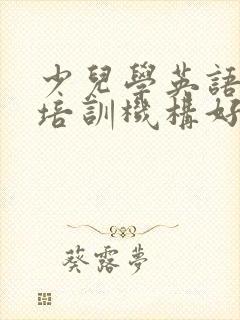 少兒學英語
培訓機構好
葵露夢